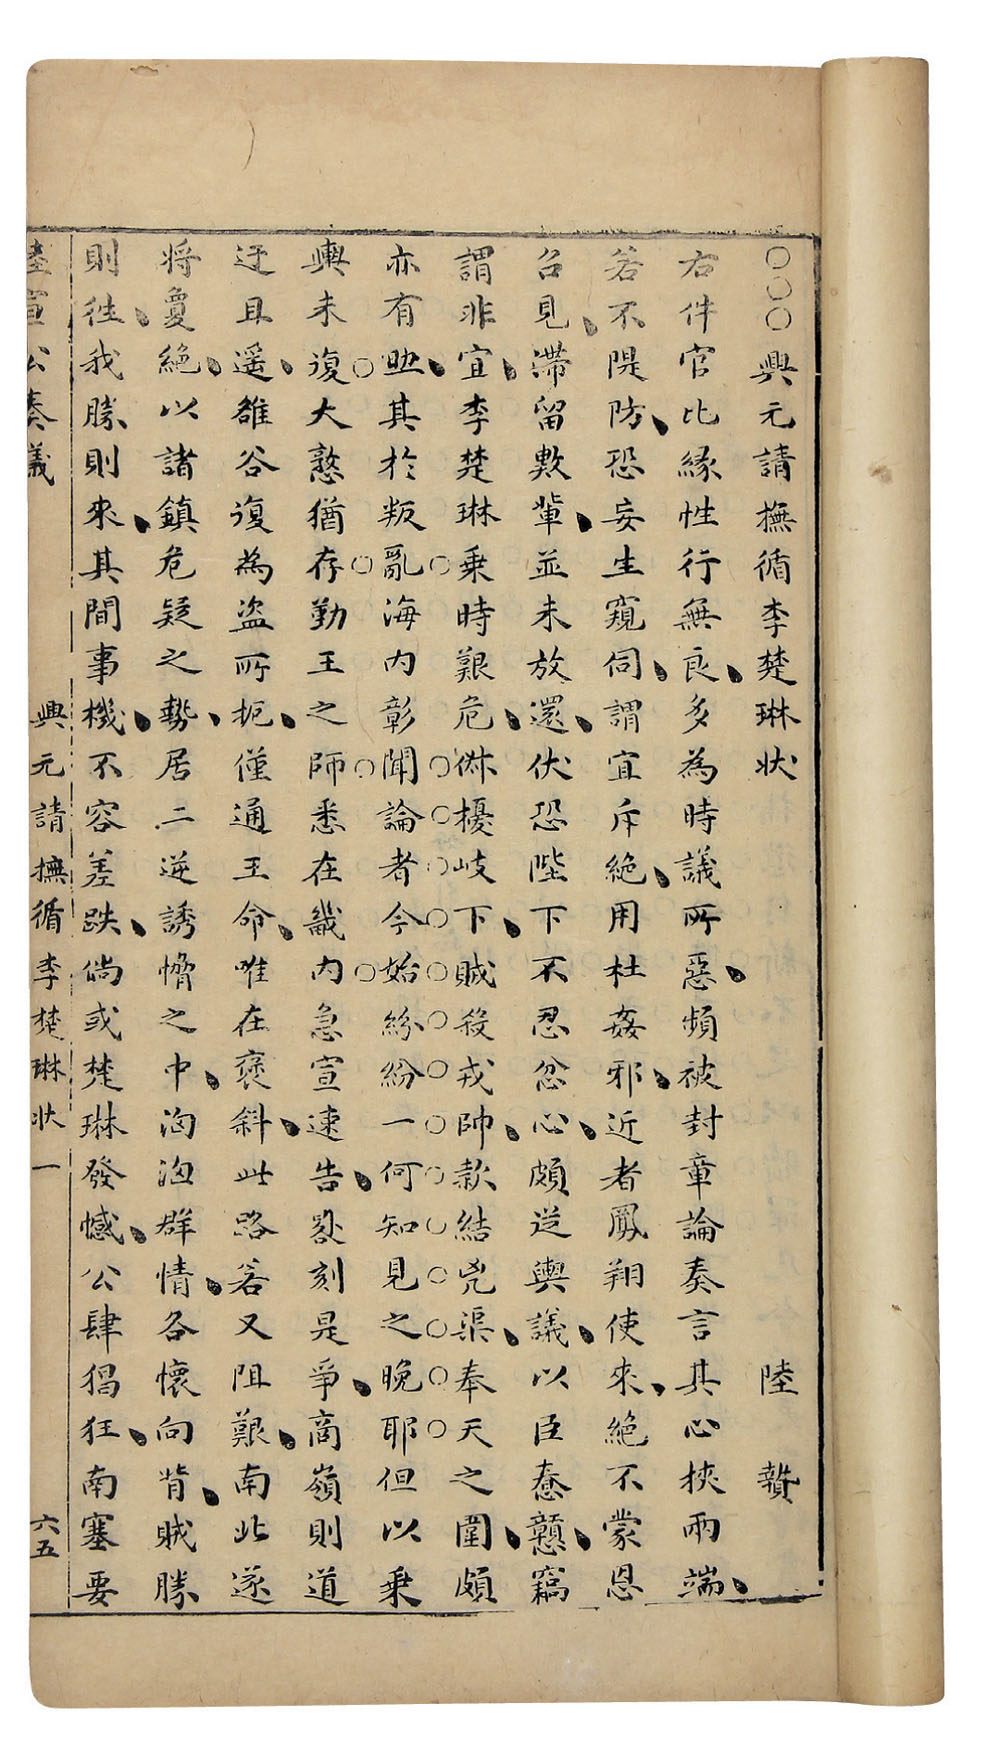 ○○○興元請撫循李楚琳狀 陸贄
右件官比緣性行無良多為時議所惡頻被封章論奏言其心挾兩端
若不隄防恐妄生窺伺謂宜斥絕用杜姦邪近者鳳翔使來絕不蒙恩
召見滯留數輩並未放還伏恐陛下不忍忿心頗逆輿議以臣惷戇竊
謂非宜李楚琳乗時艱危俶擾岐下賊殺戎帥款結兇渠奉天之圍頗
亦有助其於叛亂海內彰聞論者今始紛紛一何知見之晚耶但以乗
輿未復大憝猶存勤王之師悉在畿內急宣速告晷刻是爭商嶺則道
迂且遥雒谷復為盜所扼僅通王命唯在褒斜此路若又阻艱南北遂
將敻絕以諸鎮危疑之勢居二逆誘脅之中洶洶群情各懷向背賊勝
則徃我勝則來其間事機不容差跌倘或楚琳發憾公肆猖狂南塞要
陸宣公奏議 興元請撫循李楚琳狀 一 六五